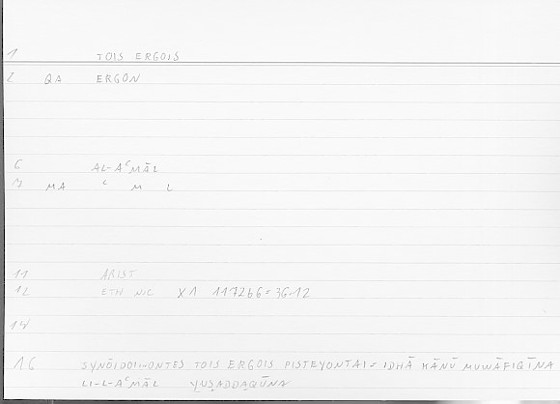 1 TOIS ERGOIS
2 QA ERGON
6 AL-AʿMĀL
7 MA ʿ M L
11 ARIST
12 ETH NIC X1 1172b6 = 36.12
14
16 TOIS ERGOIS PISTEYONTAI = IDHĀ KĀNŪ MUWĀFIQĪNA
LI-L-AʿMĀL YUṢADDAQŪNA